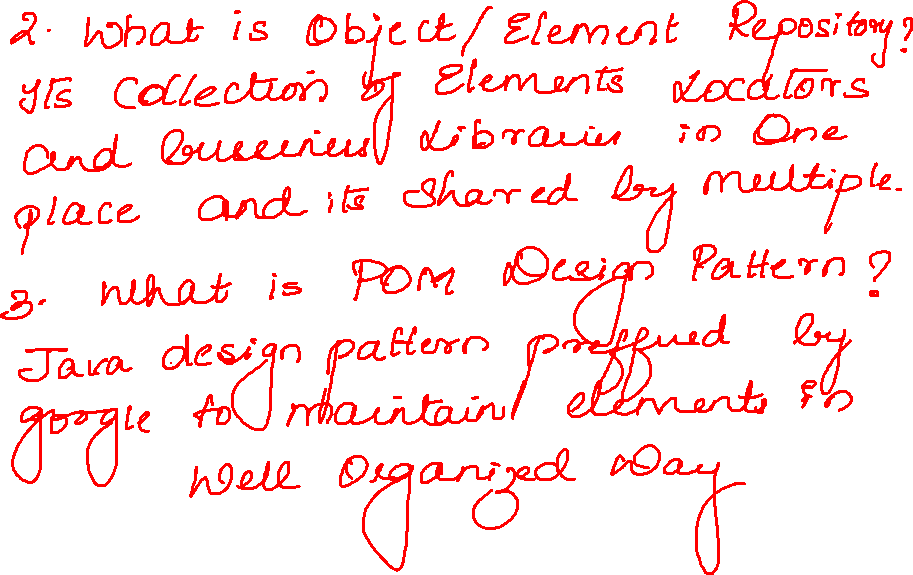 2. What is Object/Element Repository?
Its Collection of Elements Locators
and bussiness Libraries in One
place and its shared by multiple.
3. What is POM Design Pattern?
Java design pattern preffued by
google to maintain elements in
Well Organized Way